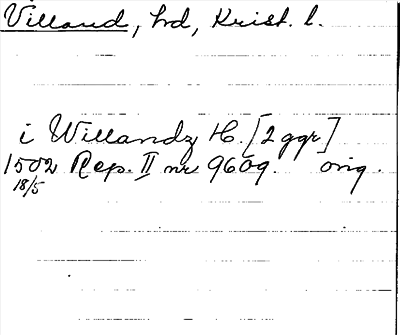 Villand, hd, Krist. l.
i Willandz H. [2 ggr]
1502 Rep. II nr 9609. orig.
18/5